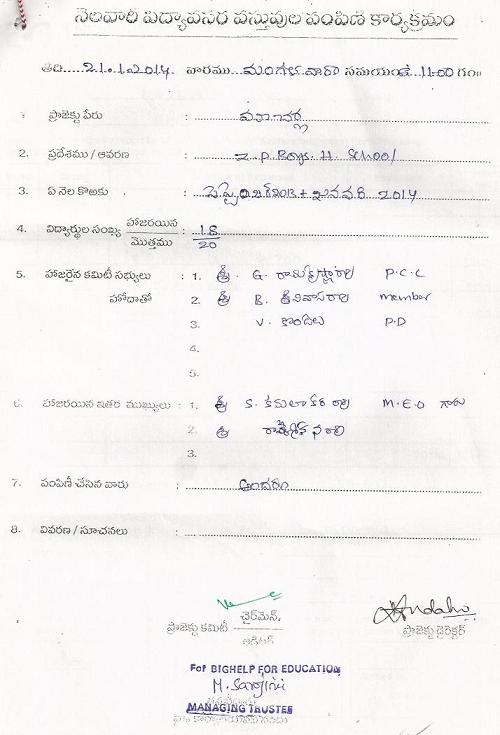 నెలవారి విద్యావసర వస్తువుల పంపిణి కార్యక్రమం
తేది.....21.1.2014. వారము మంగళవారం సమయం 11-00 గం॥
1. ప్రాజెక్టు పేరు : మాచర్ల
2. ప్రదేశము / ఆవరణ : Z.P Boys. H. School
3. ఏ నెల కొఱకు : 2013 + జనవరి 2014
4. విద్యార్థుల సంఖ్య హాజరయిన / మొత్తము : 18 / 20
5. హాజరైన కమిటీ సభ్యులు : 1. శ్రీ. G. రామకృష్ణారావు P.C.C
హోదాతో 2. శ్రీ B. శ్రీనివాసరావు member
3. V. కొండలు P.D
4.
5.
6. హాజరయిన ఇతర ముఖ్యులు : 1. శ్రీ K. కమలాకర రావు M.E.O గారు
2. శ్రీ
3.
7. పంపిణీ చేసిన వారు : అందరం
8. వివరణ / సూచనలు :
ప్రాజెక్టు కమిటీ చైర్‌మెన్.
ఆడిటర్
ప్రాజెక్టు డైరెక్టర్
For BIGHELP FOR EDUCATION
M. Sarojini
MANAGING TRUSTEE